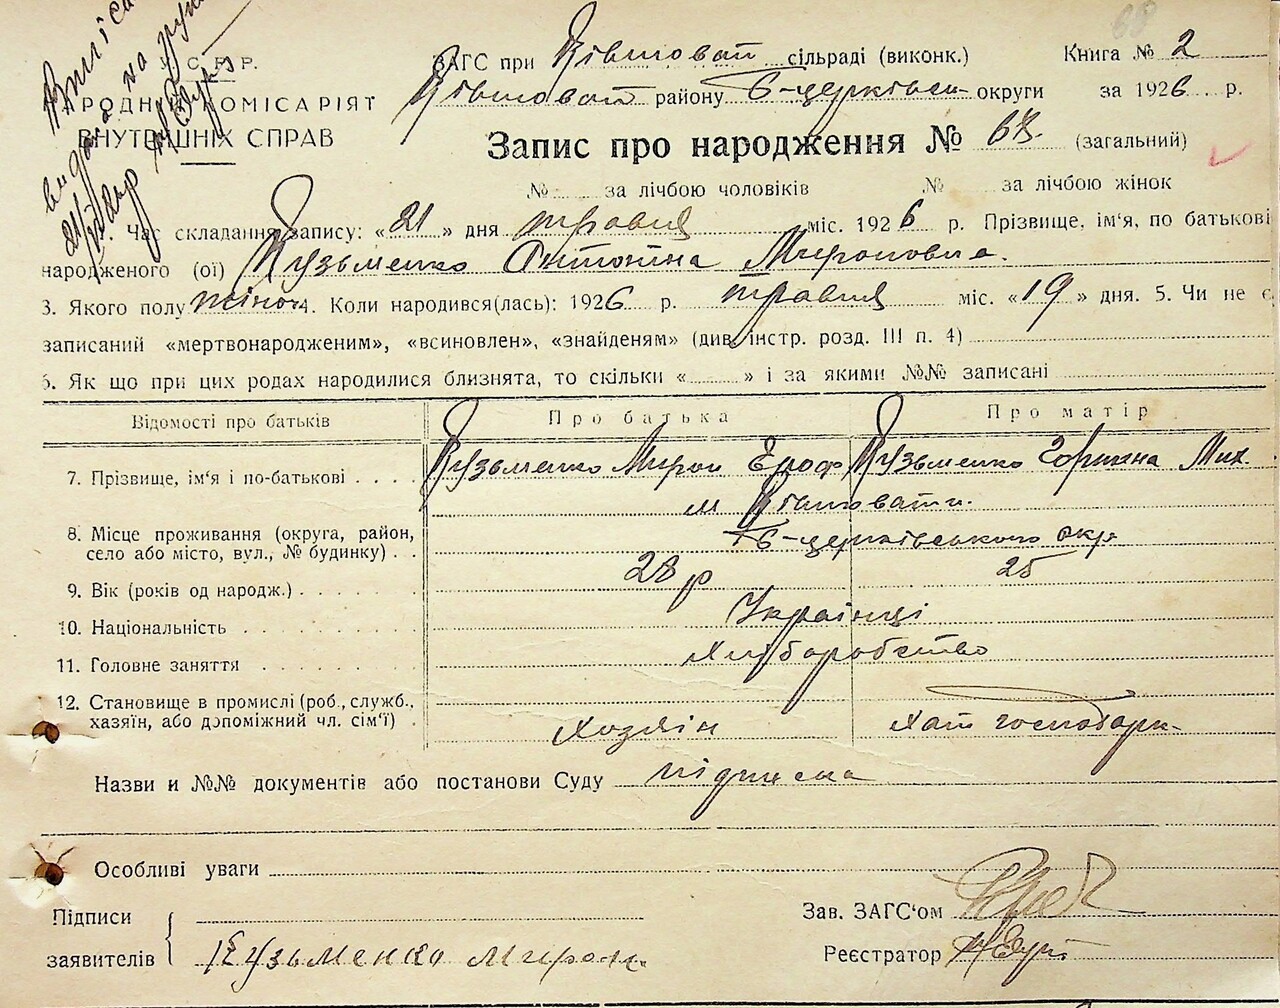 У. С. Р. Р.
НАРОДНИЙ КОМІСАРІЯТ
ВНУТРІШНІХ СПРАВ
Виписа
видана на руки
ЗАГС при сільраді (виконк.) Книга № 2
району Б-церківськ округи за 1926 р.
Запис про народження № 67 (загальний)
№ за лічбою чоловіків № за лічбою жінок
Час складання запису: «21» дня травня міс. 1926 р. Прізвище, ім'я, по батькові
народженого (ої) Кузьменко Антоніна Мироновна.
3. Якого полу жіноч 4. Коли народився(лась): 1926 р. травня міс. «19» дня. 5. Чи не є
записаний «мертвонародженим», «всиновлен», «знайденям» (див. інстр. розд. III п. 4)
6. Як що при цих родах народилися близнята, то скільки « » і за якими №№ записані
Відомості про батьків Про батька Про матір
7. Прізвище, ім'я і по-батькові Кузьменко Мирон Ероф Кузьменко Горпина Мих.
8. Місце проживання (округа, район,
село або місто, вул., № будинку) Б-церківського окр.
9. Вік (років од народж.) 28 р 25
10. Національність Українці
11. Головне заняття Хліборобство
12. Становище в промислі (роб., служб.,
хазяїн, або допоміжний чл. сім'ї) Хозяїн Хат господарк
Назви и №№ документів або постанови Суду підписка
Особливі уваги
Підписи
заявителів Кузьменко Мирон.
Зав. ЗАГС'ом
Реєстратор